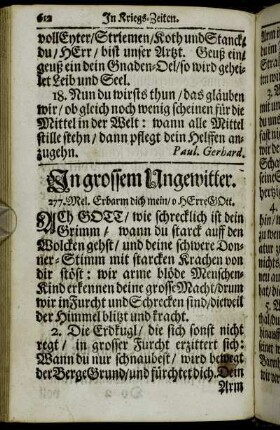 612 In Kriegs-Zeiten.
voll Eyter/Striemen/Koth und Stanck/
du/HErr/ bist unser Artzt. Geuß ein/
geuß ein dein Gnaden-Oel/so wird gehei-
let Leib und Seel.
18. Nun du wirsts thun/das gläuben
wir/ob gleich noch wenig scheinen für die
Mittel in der Welt: wann alle Mittel
stille stehn/dann pflegt dein Helffen an-
zugehn. Paul. Gerhard.
In grossem Ungewitter.
277. Mel. Erbarm dich mein/o HErre Gott.
ACH GOTT/wie schrecklich ist dein
Grimm/ wann du starck auff den
Wolcken gehst/und deine schwere Don-
ner-Stimm mit starcken Krachen von
dir stöst: wir arme blöde Menschen-
Kind erkennen deine grosse Macht/drum
wir in Furcht und Schrecken sind/dieweil
der Himmel blitzt und kracht.
2. Die Erdkugl/ die sich sonst nicht
regt/ in grosser Furcht erzittert sich:
Wann du nur schnaubest/ wird bewegt
der Berge Grund/und fürchtet dich. Dein
Arm